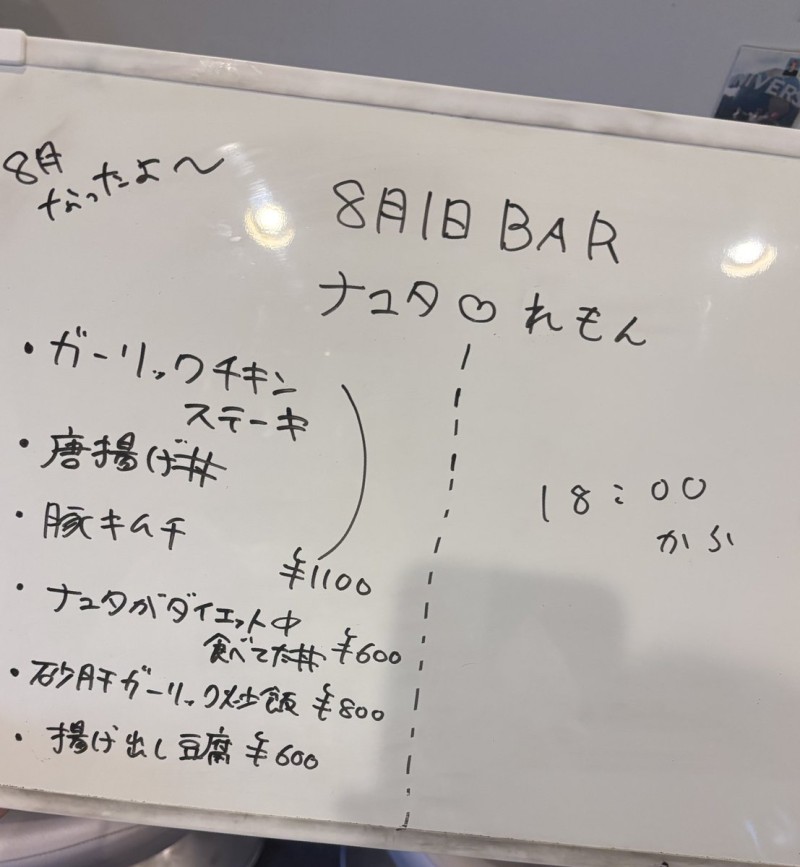 8月
なったよ〜
8月1日 BAR
ナユタ♡れもん
・ガーリックチキン
ステーキ
・唐揚げ丼
・豚キムチ
¥1100
・ナユタがダイエット中
食べてた丼 ¥600
・砂肝ガーリック炒飯 ¥800
・揚げ出し豆腐 ¥600
18:00
から